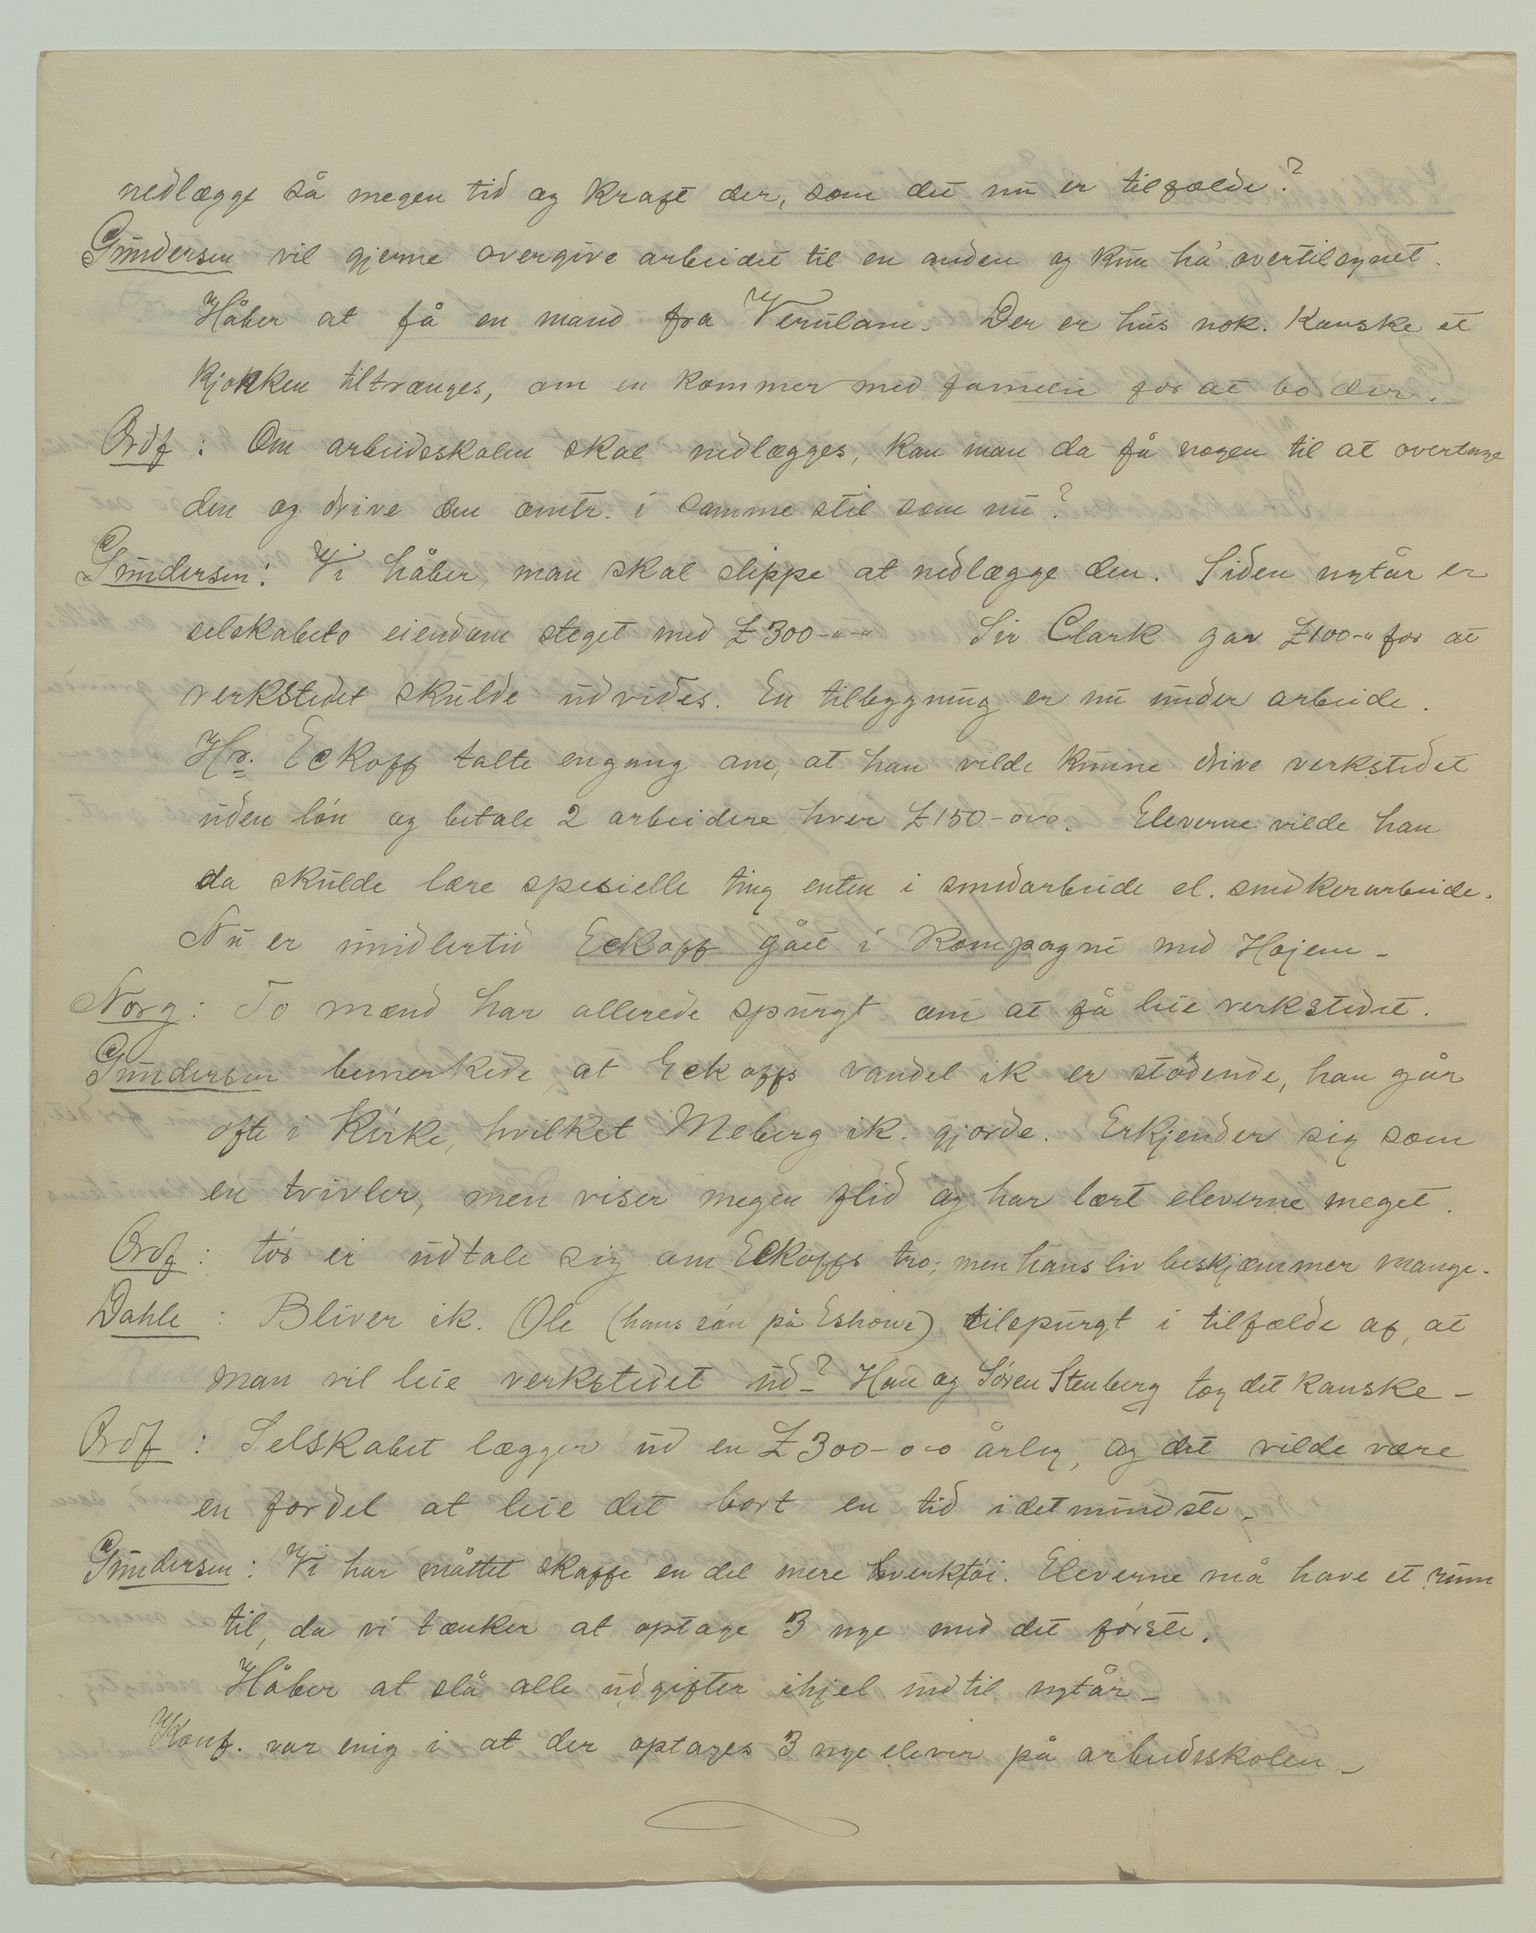 nedlægge så megen tid og kraft der, som det nu er tilfælde?
Gundersen vil gjerne overgive arbeidet til en anden og kun ha overtilsynet.
Håber at få en mand fra Verulam. Der er hus nok. Kanske et
kjøkken tiltrænges, om en kommer med familie for at bo der.
Ordf: Om arbeidsskolen skal nedlægges, kan man da få nogen til at overtage
den og drive den omtr. i samme stil som nu?
Gundersen: Vi håber, man skal slippe at nedlægge den. Siden nytår er
selskabets eiendom steget med £300-"-" Sir Clark gav £100-" for at
verkstedet skulde udvides. En tilbygning er nu under arbeide.
Hr. Eckoff talte engang om, at han vilde kunne drive verkstedet
uden løn og betale 2 arbeidere hver £150-o-o. Eleverne vilde han
da skulde lære spesielle ting enten i smedarbeide el. snedkerarbeide.
Nu er imidlertid Eckoff gået i kompagni med Højem -
Norg: To mænd har allerede spurgt om at få leie verkstedet.
Gundersen bemerkede, at Eckoffs vandel ik er stødende, han går
ofte i kirke, hvilket Meberg ik. gjorde. Erkjender sig som
en tvivler, men viser megen flid og har lært eleverne meget.
Ordf: tør ei udtale sig om Eckoffs tro; men hans liv beskjæmmer mange.
Dahle: Bliver ik. Ole (hans søn på Eshowe) tilspurgt i tilfælde af, at
man vil leie verkstedet ud-? Han og Søren Stenberg tog det kanske -
Ordf: Selskabet lægger ud en £300-o-o årlig, og det vilde være
en fordel at leie det bort en tid i det mindste.
Gundersen: Vi har måttet skaffe en del mere verktøi. Eleverne må have et rum
til, da vi tænker at optage 3 nye med det første.
Håber at slå alle udgifter ihjel indtil nytår -
Konf. var enig i at der optages 3 nye elever på arbeidsskolen -